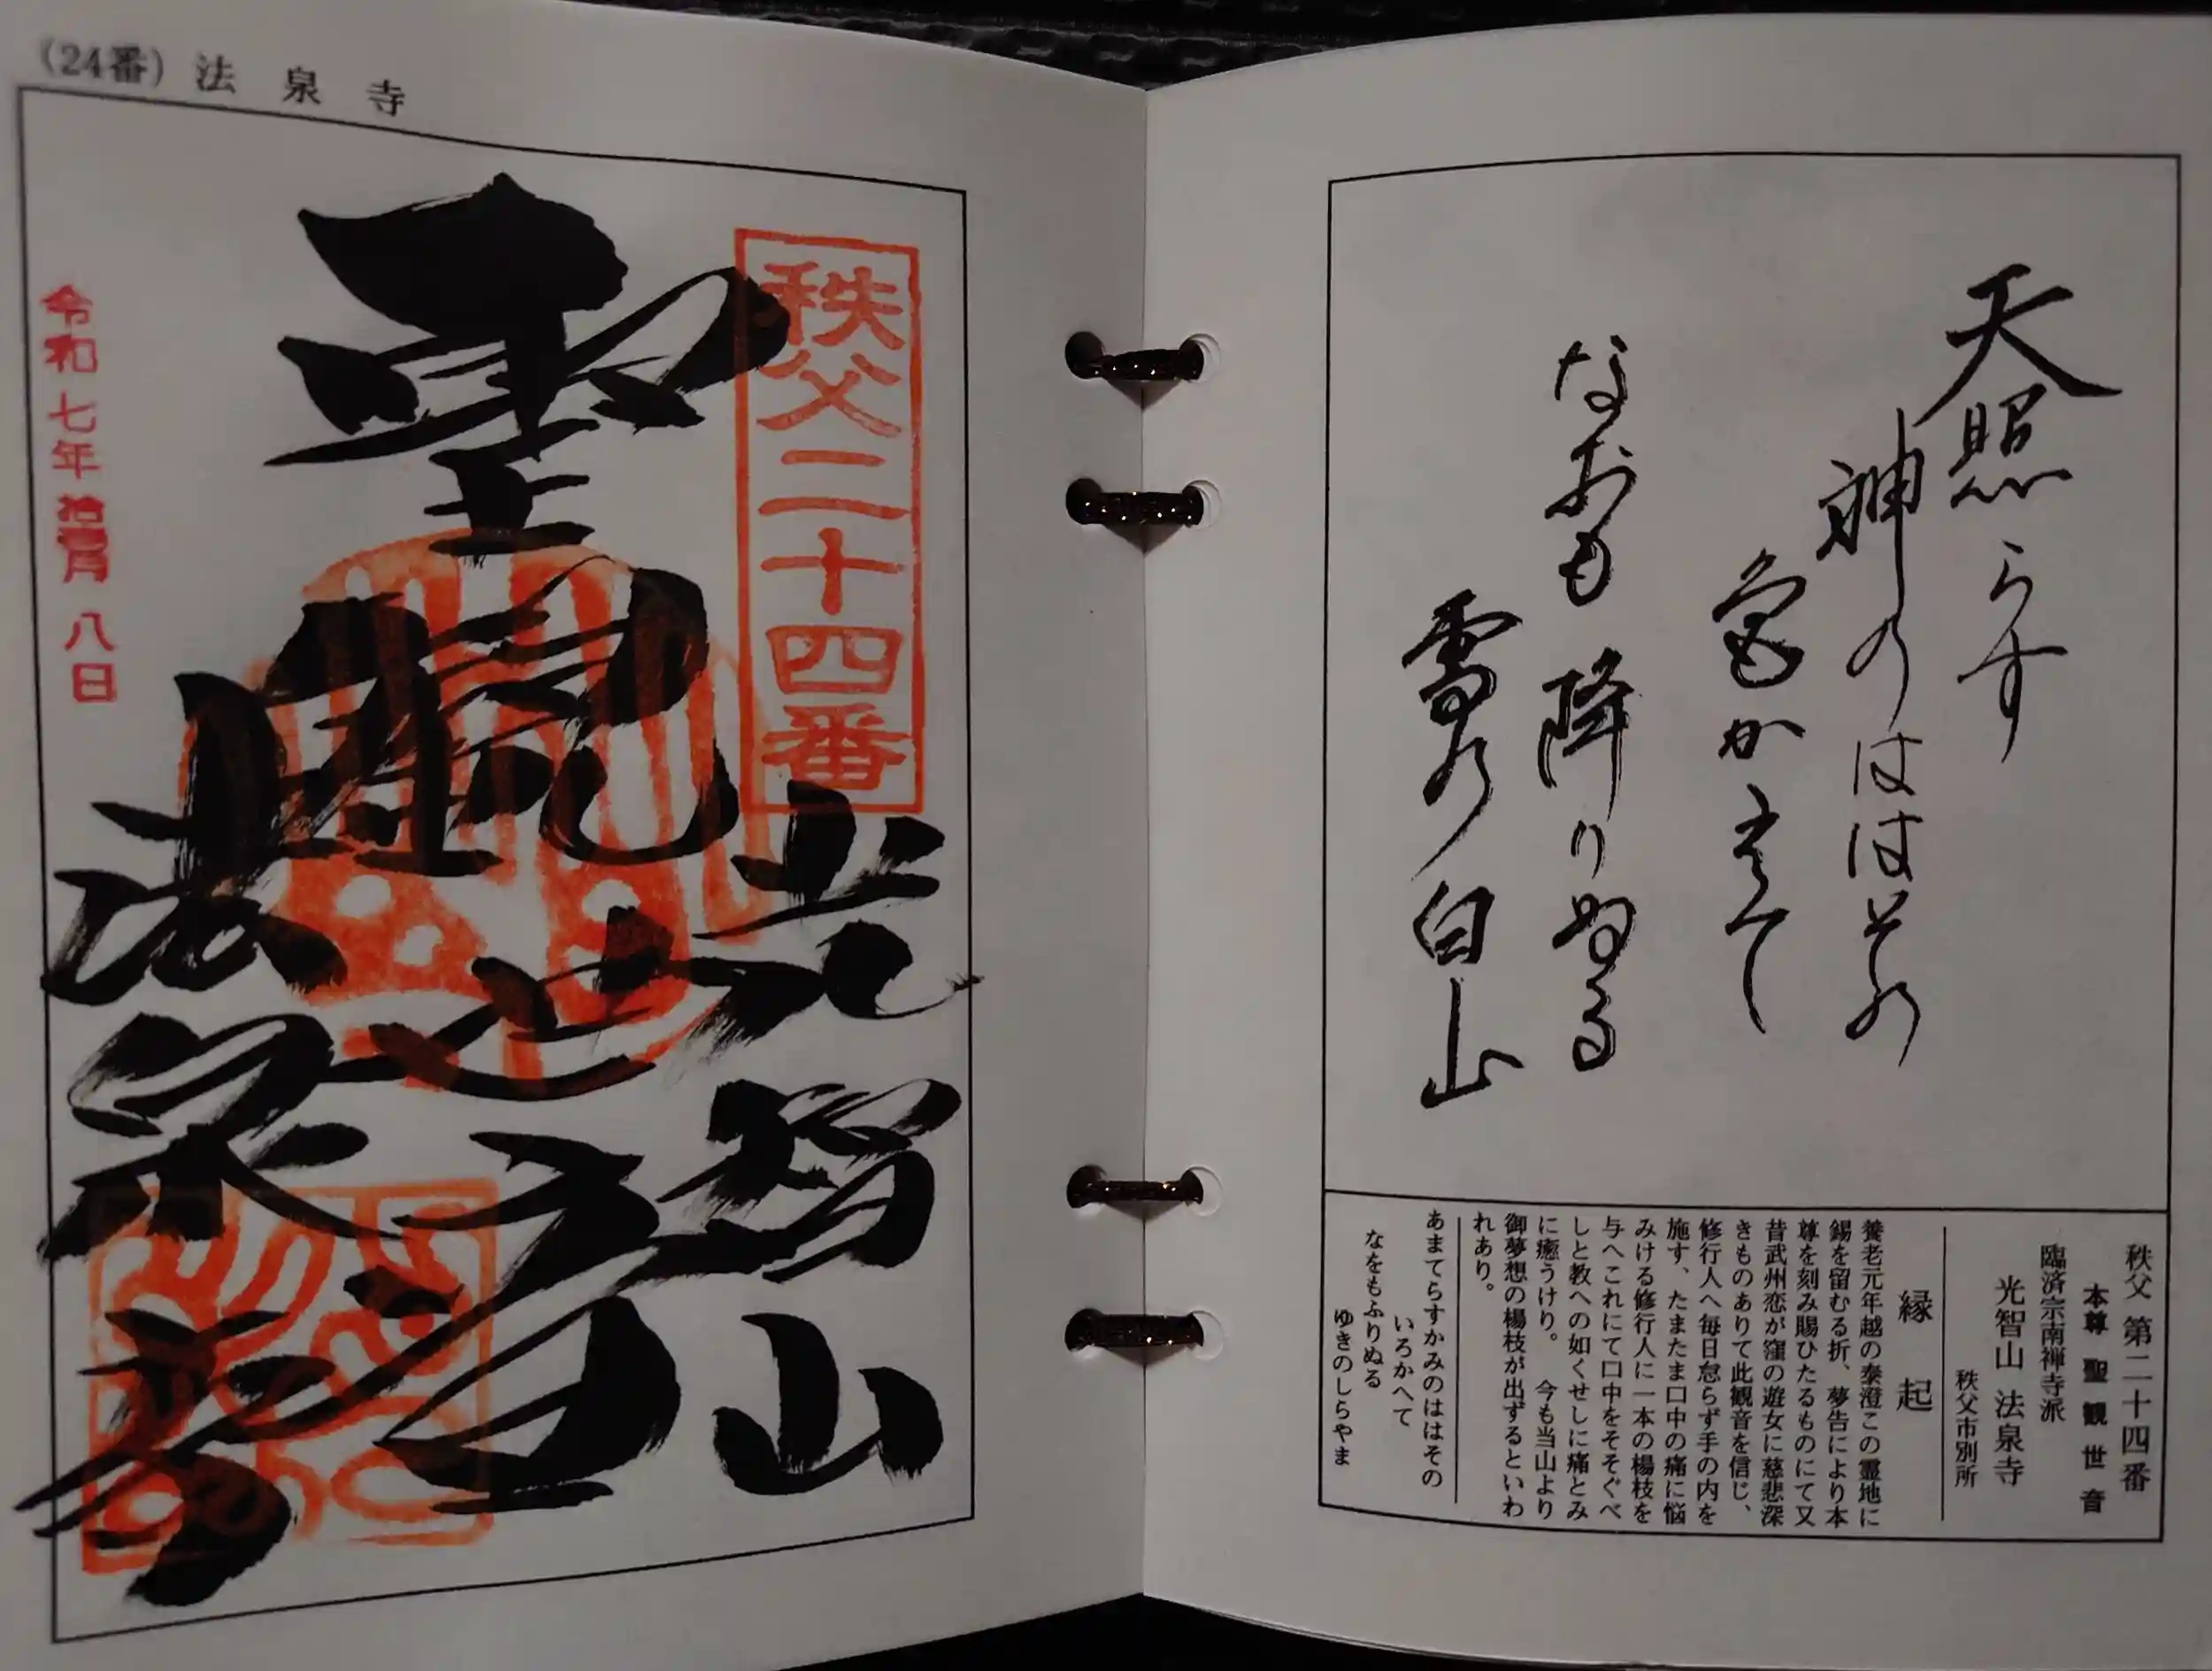 (24番) 法泉寺
秩父二十四番
光智山
聖観世音
法泉寺
令和七年拾壱月八日
天照らす
神のははその
色かえて
なおも降りぬる
雪の白山
秩父 第二十四番
本尊 聖観世音
臨済宗南禅寺派
光智山 法泉寺
秩父市別所
縁起
養老元年越の泰澄この霊地に
錫を留むる折、夢告により本
尊を刻み賜ひたるものにて又
昔武州恋が窪の遊女に慈悲深
きものありて此観音を信じ、
修行人へ毎日怠らず手の内を
施す、たまたま口中の痛に悩
みける修行人に一本の楊枝を
与へこれにて口中をそそぐべ
しと教への如くせしに痛とみ
に癒うけり。 今も当山より
御夢想の楊枝が出ずるといわ
れあり。
あまてらすかみのははその
いろかへて
なをもふりぬる
ゆきのしらやま